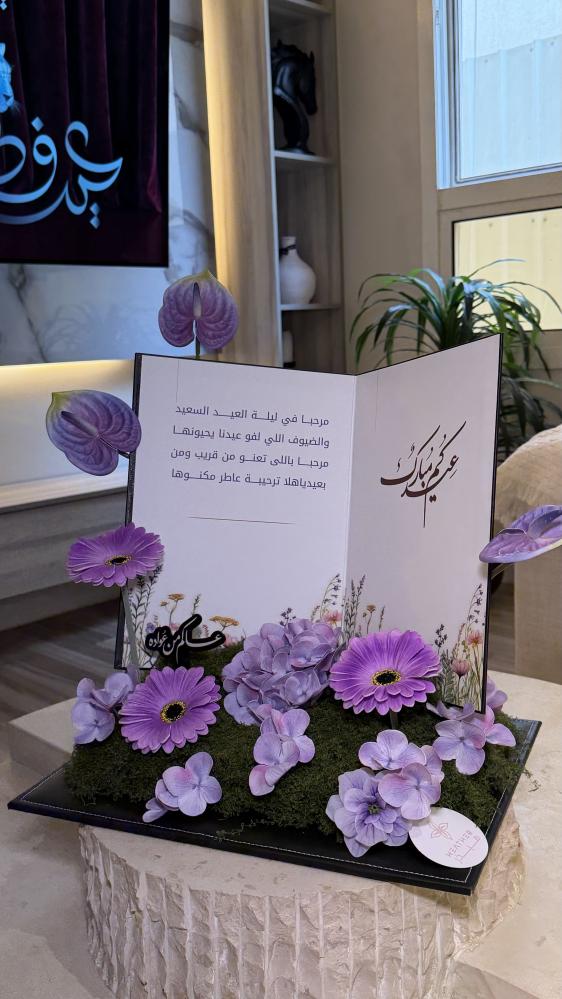 عيد فطر
مرحبا في ليلة العيد السعيد
والضيوف اللي لفو عيدنا يحيونها
مرحبا باللى تعنو من قريب ومن
بعيدياهلا ترحيبة عاطر مكنوها
عيدكم مبارك
عساكم من عواده
HEATHER